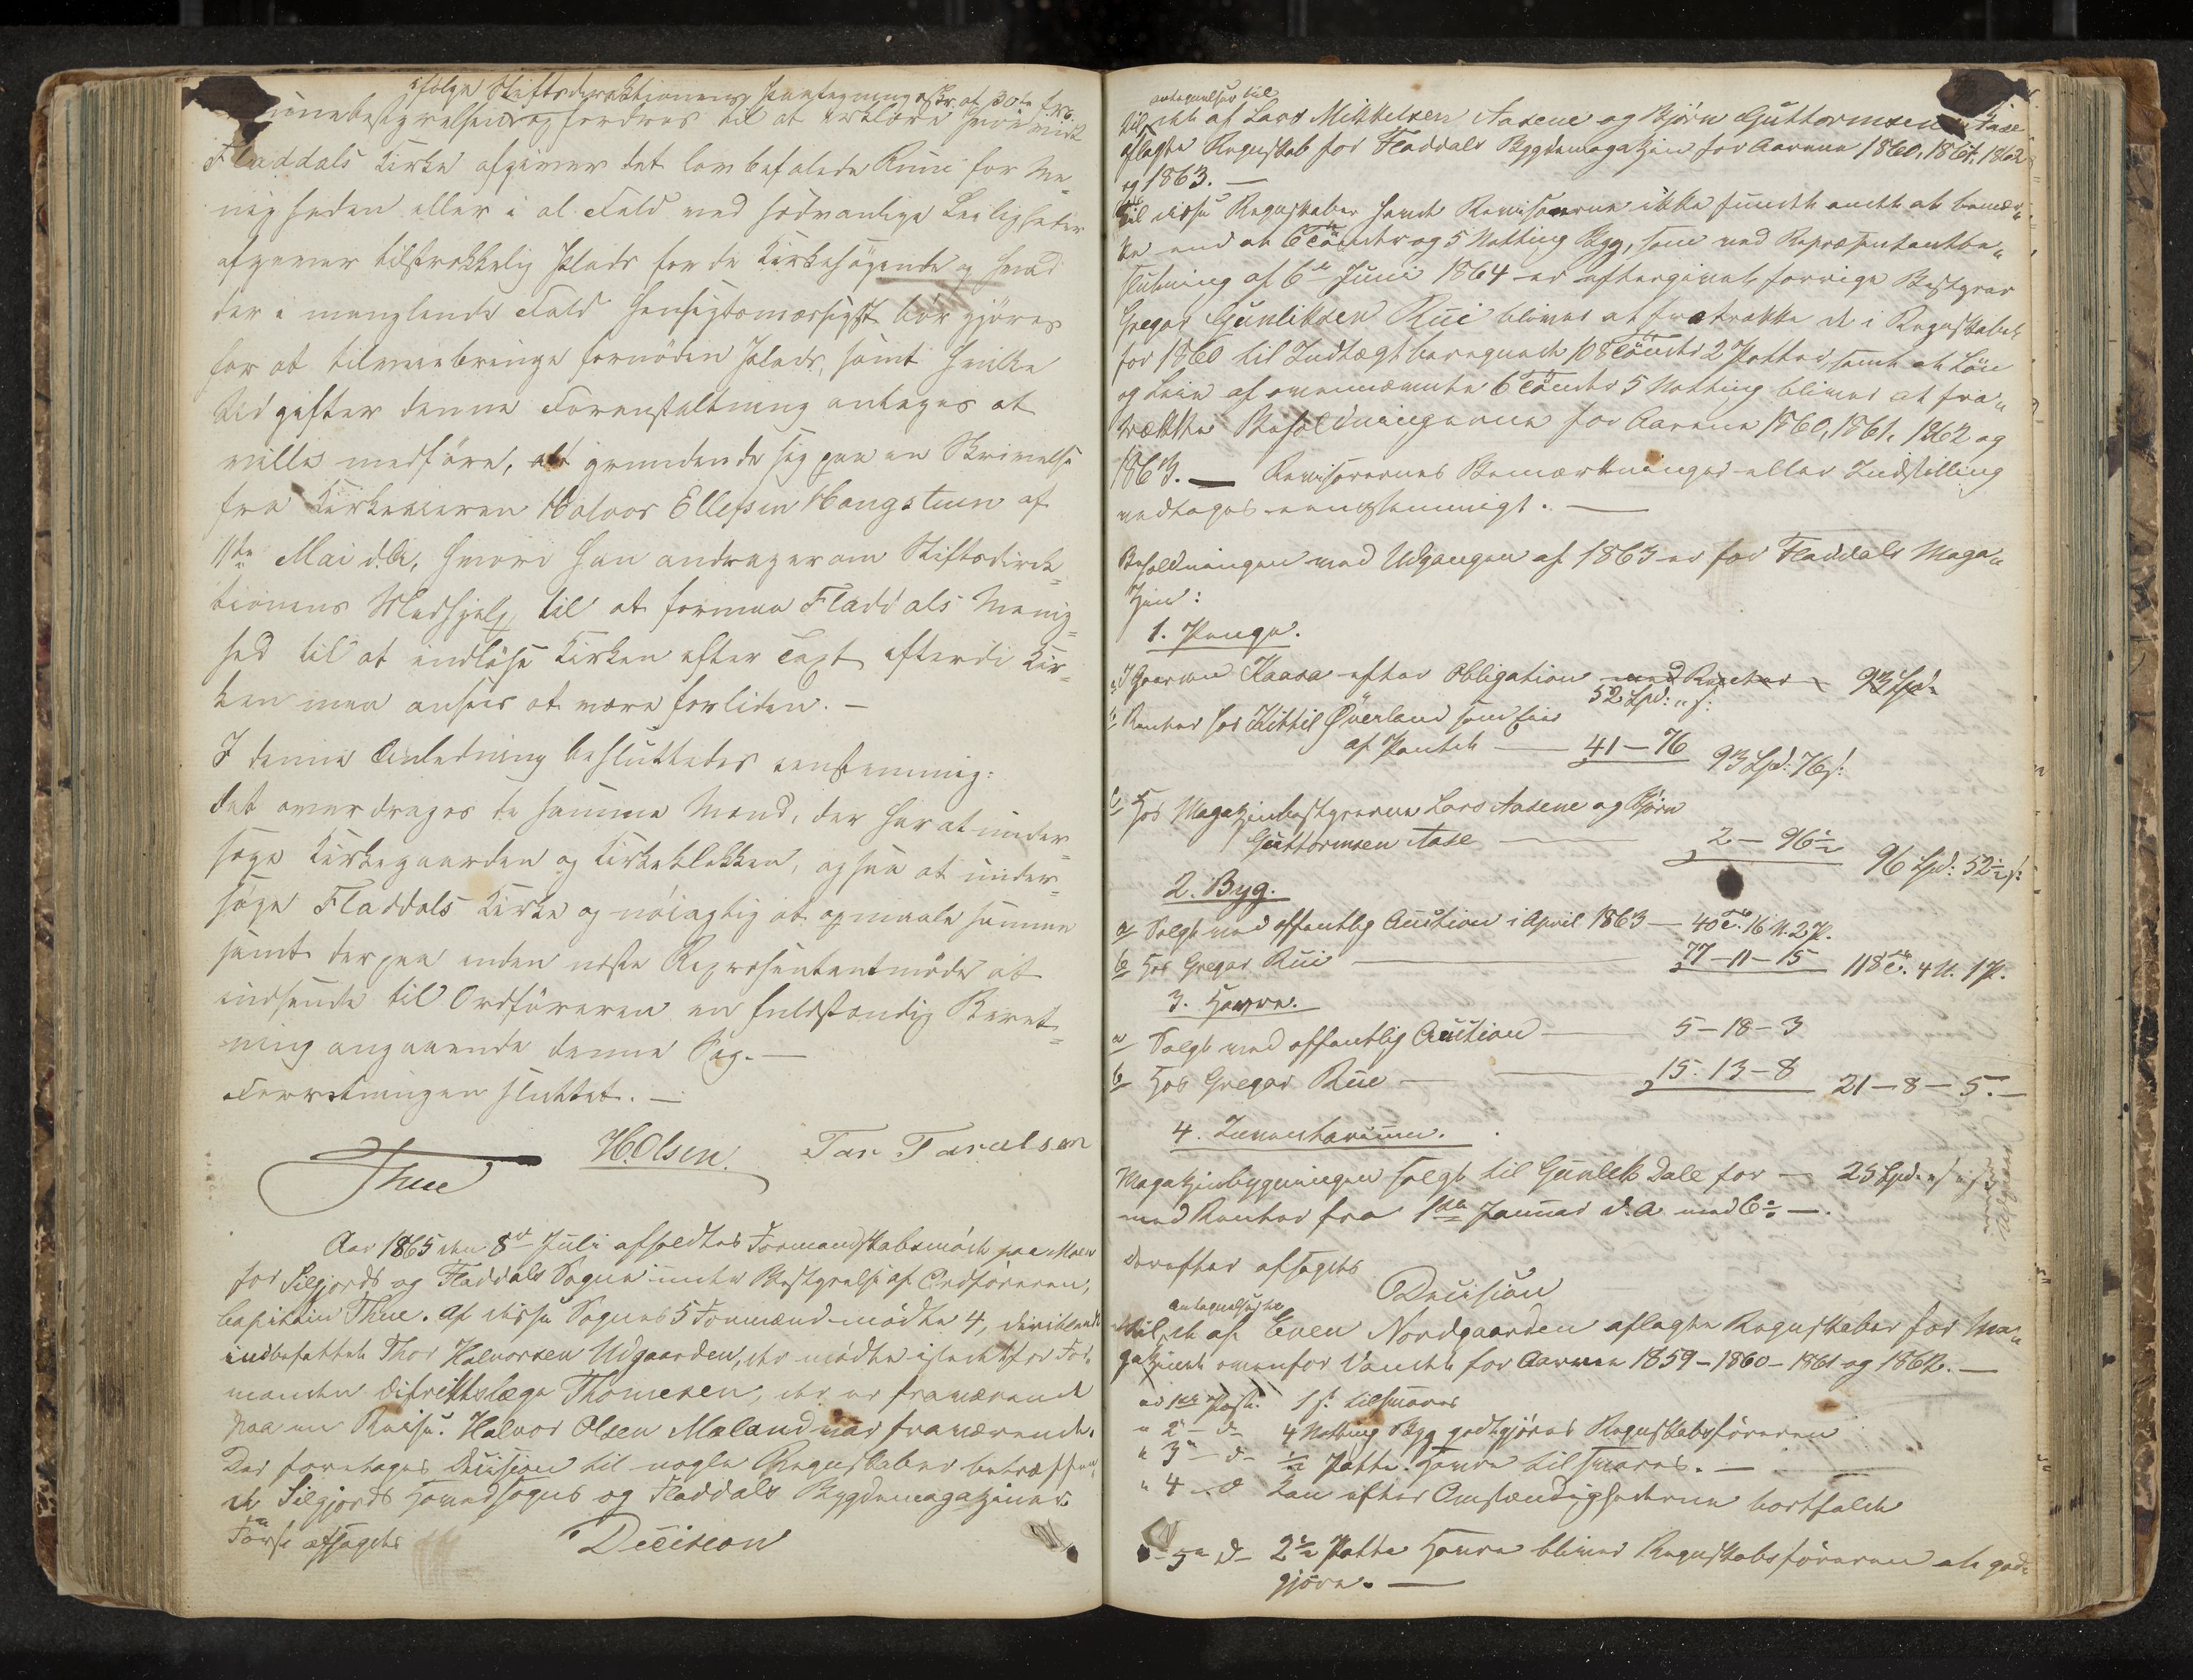 ifølge Stiftsdirektionens Paategningsskr. af 30te f.M.
ionebestyrelsen opfordres til at erklære hvorvidt
Fladdals Kirke afgiver det lovbefalede Rum for Me=
nigheden eller i al Fald ved sædvanlige Leiligheder
afgiver tilstrækkelig Plads for de Kirkesøgende og hvad
der i manglende Fald hensigtsmæssigst bør gjøres
for at tilveiebringe fornøden Plads, samt hvilke
Udgifter denne Foranstaltning antages at
ville medføre, alt grundende sig paa en Skrivelse
fra Kirkeeieren Halvor Ellefsen Haugstuen af
11te Mai d.A., hvori han andrager om Stiftsdirek=
tionens Medhjelp til at formaa Fladdals Menig=
hed til at indløse Kirken efter Taxt efterdi Kir=
ken maa ansees at være forliden. —
I denne Anledning besluttedes eenstemmig:
det overdrages de samme Mænd, der har at under=
søge Kirkegaarden og Kirkeklokken, ogsaa at under=
søge Fladdals Kirke og nøiagtig at opmaale samme
samt derpaa inden næste Repræsentantmøde at
indsende til Ordføreren en fuldstændig Beret=
ning angaaende denne Sag. —
Forretningen sluttet. —
Thue H. Olsen. Tar Taraldsen
Aar 1865 den 8de Juli afholdtes Formandskabsmøde paa Moen
for Silgjords og Fladdals Sogne under Bestyrelse af Ordføreren,
Capitain Thue. Af disse Sognes 5 Formænd mødte 4, deriblandt
indbefattet Thor Halvorsen Udgaarden, der mødte istedetfor For=
manden Distriktslæge Thomesen, der er fraværende
paa en Reise. Halvor Olsen Maland var fraværende.
Der foretages Decision til nogle Regnskaber betræffen=
de Silgjords Hovedsogns og Fladdals Bygdemagaziner.
Først afsagdes
Decision
Antegnelser til
til det af Lars Mikkelsen Aasene og Bjørn Guttormsen Aase
aflagte Regnskab for Fladdals Bygdemagazin for Aarene 1860, 1861, 1862
og 1863. —
Til disse Regnskaber havde Revisorerne ikke fundet andet at bemær=
ke end at 6 Tønder og 5 Netting Byg, som ved Repræsentantbe=
slutning af 6te Juni 1864 er eftergivet forrige Bestyrer
Gregar Gunliksen Rui bliver at fratrække de i Regnskabet
for 1860 til Indtægt beregnede 108 Tønder 2 Potter, samt at Løn
og Leie af ovennævnte 6 Tønder 5 Netting bliver at fra=
trække Beholdningerne for Aarene 1860, 1861, 1862 og
1863. — Revisorernes Bemærkninger eller Indstilling
vedtages eenstemmigt. —
Beholdningen ved Udgangen af 1863 er for Fladdals Maga=
zin:
1. Penge.
a, I Gaarden Haasa efter Obligation med Renter — 93 Spd.
52 Spd: " s:
b, Renter hos Kittil Øverland som Eier
af Pantet — 41 — 76 93 Spd: 76 s:
c, Hos Magazinbestyrerne Lars Aasene og Bjørn
Guttormsen Aase — 2 — 96½ 96 Spd: 52½ s:
2. Byg.
a, Solgt ved offentlig Auction i April 1863 — 40 T. 16 N. 2 P.
b, Hos Gregar Rui — 77 — 11 — 15 118 T. 4 N. 1 P.
3. Havre.
a, Solgt ved offentlig Auction — 5 — 18 — 3
b, Hos Gregar Rue — 15. 13 — 8 21 — 8 — 5. —
4. Inventarium.
Magazinbygningen solgt til Gunlek Dale for — 25 Spd.
med Renter fra 1ste Januar d.A. med 6 % —.
Derefter afsagdes
Decision
Antegnelser til
til det af Even Nordgaarden aflagte Regnskaber for Ma=
gazinet ovenfor Vandet for Aarene 1859 — 1860 — 1861 og 1862. —
ad 1ste Post. 1 s. tilsvares
" 2 — d— 4 Netting Byg godtgjøres Regnskabsføreren
" 3 — d— ½ Potte Havre tilsvares. —
" 4 — d Kan efter Omstændighederne bortfalde
" 5 — d— 2½ Potte Havre bliver Regnskabsføreren at god=
gjøre. —